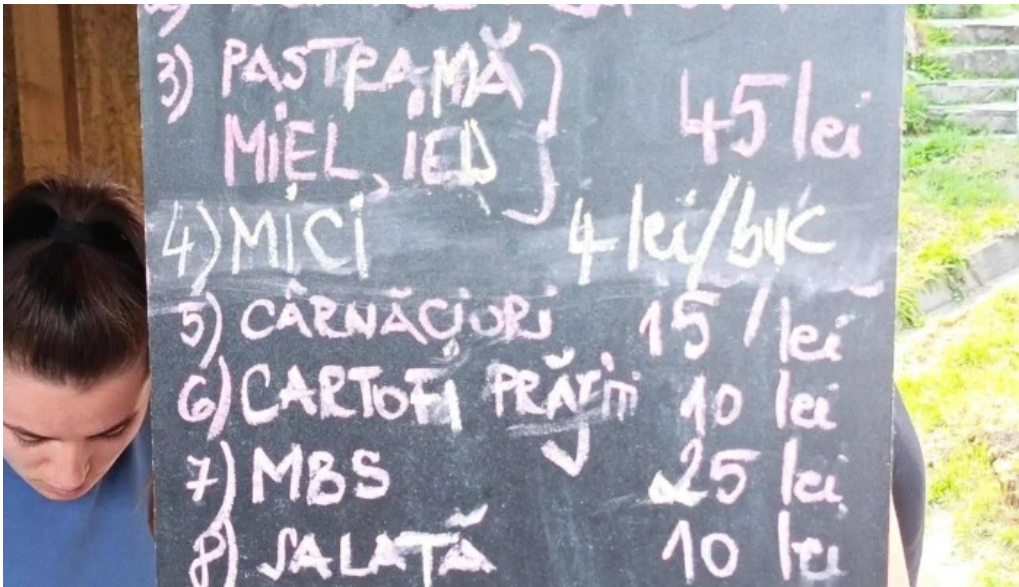 3) PASTRAMĂ
MIEL, IED 45 lei
4) MICI 4 lei/buc
5) CÂRNĂCIORI 15 / lei
6) CARTOFI PRĂJIȚI 10 lei
7) MBS 25 lei
8) SALATĂ 10 lei